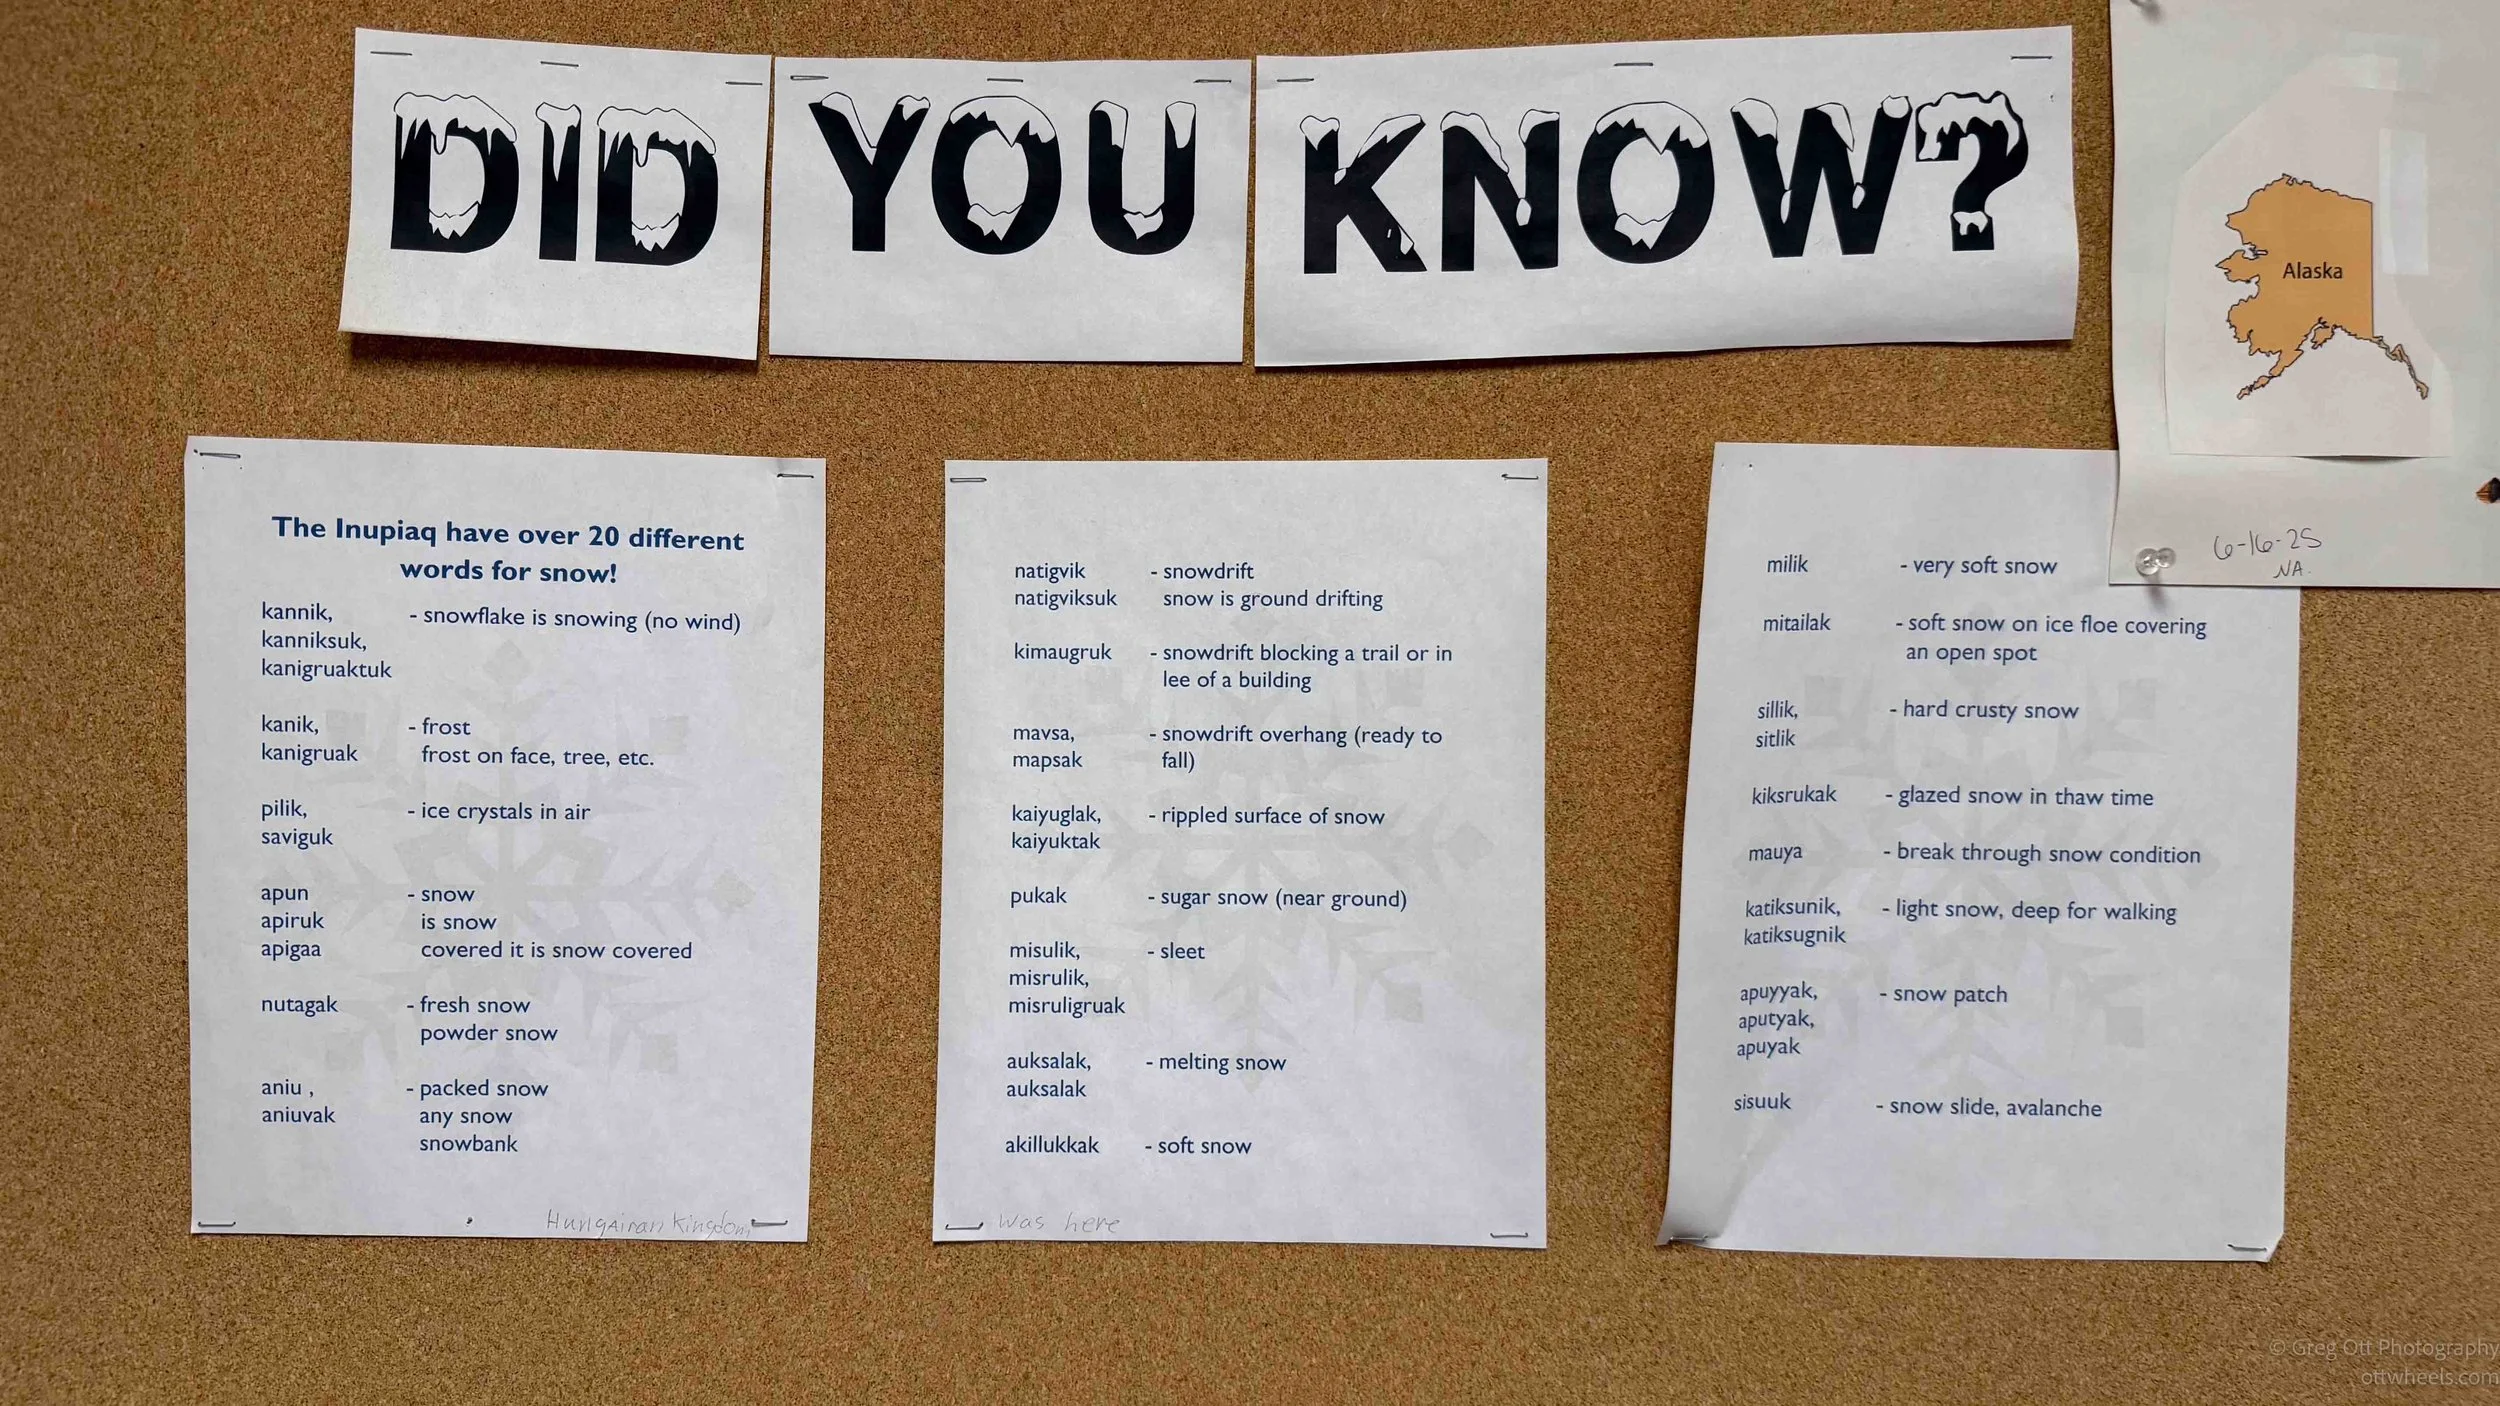 DID YOU KNOW?
Alaska
6-16-25
NA.
The Inupiaq have over 20 different
words for snow!
kannik, - snowflake is snowing (no wind)
kanniksuk,
kanigruaktuk
kanik, - frost
kanigruak frost on face, tree, etc.
pilik, - ice crystals in air
saviguk
apun - snow
apiruk is snow
apigaa covered it is snow covered
nutagak - fresh snow
powder snow
aniu , - packed snow
aniuvak any snow
snowbank
HungAiran Kingdom
natigvik - snowdrift
natigviksuk snow is ground drifting
kimaugruk - snowdrift blocking a trail or in
lee of a building
mavsa, - snowdrift overhang (ready to
mapsak fall)
kaiyuglak, - rippled surface of snow
kaiyuktak
pukak - sugar snow (near ground)
misulik, - sleet
misrulik,
misruligruak
auksalak, - melting snow
auksalak
akillukkak - soft snow
was here
milik - very soft snow
mitailak - soft snow on ice floe covering
an open spot
sillik, - hard crusty snow
sitlik
kiksrukak - glazed snow in thaw time
mauya - break through snow condition
katiksunik, - light snow, deep for walking
katiksugnik
apuyyak, - snow patch
aputyak,
apuyak
sisuuk - snow slide, avalanche
© Greg Ott Photography
ottwheels.com